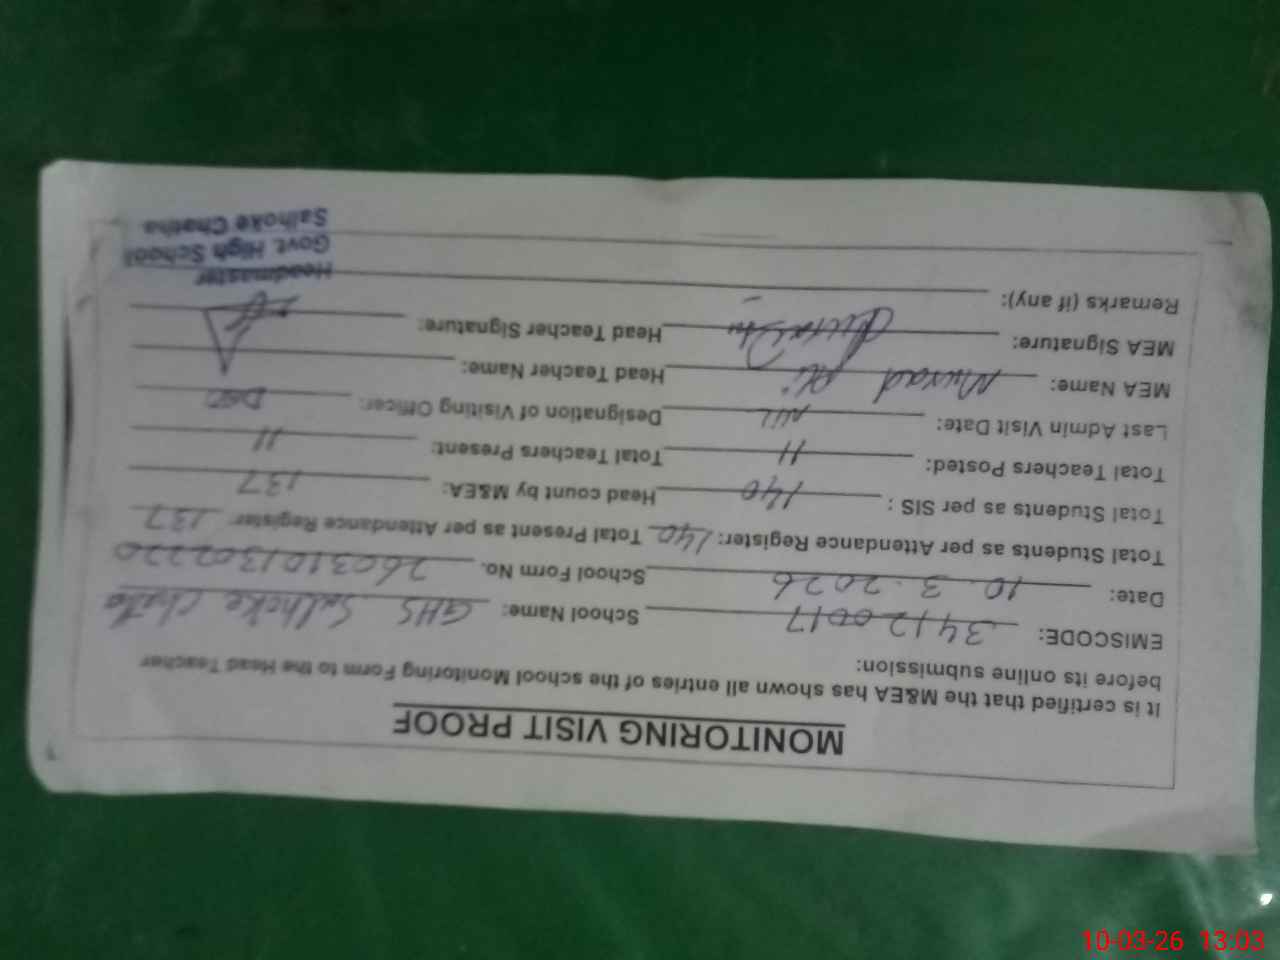 MONITORING VISIT PROOF
It is certified that the M&EA has shown all entries of the school Monitoring Form to the Head Teacher
before its online submission:
EMISCODE: 34120017 School Name: GHS Salhoke Chatha
Date: 10.3.2026 School Form No. 2603101302220
Total Students as per Attendance Register: 140 Total Present as per Attendance Register 137
Total Students as per SIS : 140 Head count by M&EA: 137
Total Teachers Posted: 11 Total Teachers Present: 11
Last Admin Visit Date: NIL Designation of Visiting Officer:
MEA Name: Murad Ali Head Teacher Name:
MEA Signature: Head Teacher Signature:
Remarks (if any):
Headmaster
Govt. High School
Salhoke Chatha
10-03-26 13:03